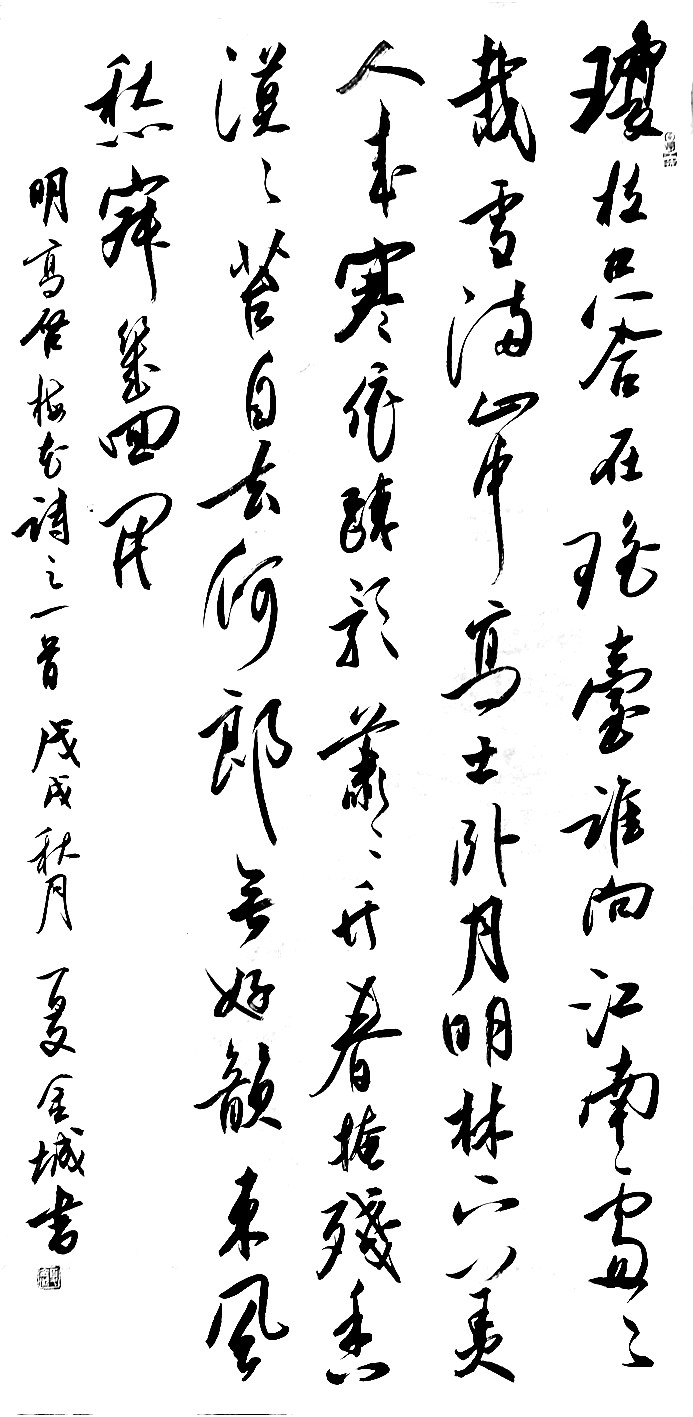 瓊枝只合在瑤臺誰向江南處々
栽雪滿山中高士卧月明林下美
人來寒依疎影蕭々竹春掩殘香
漠々苔自去何郎無好韻東風
愁寂幾回開
明高啓梅花詩之一首 戊戌秋月 夏金城书